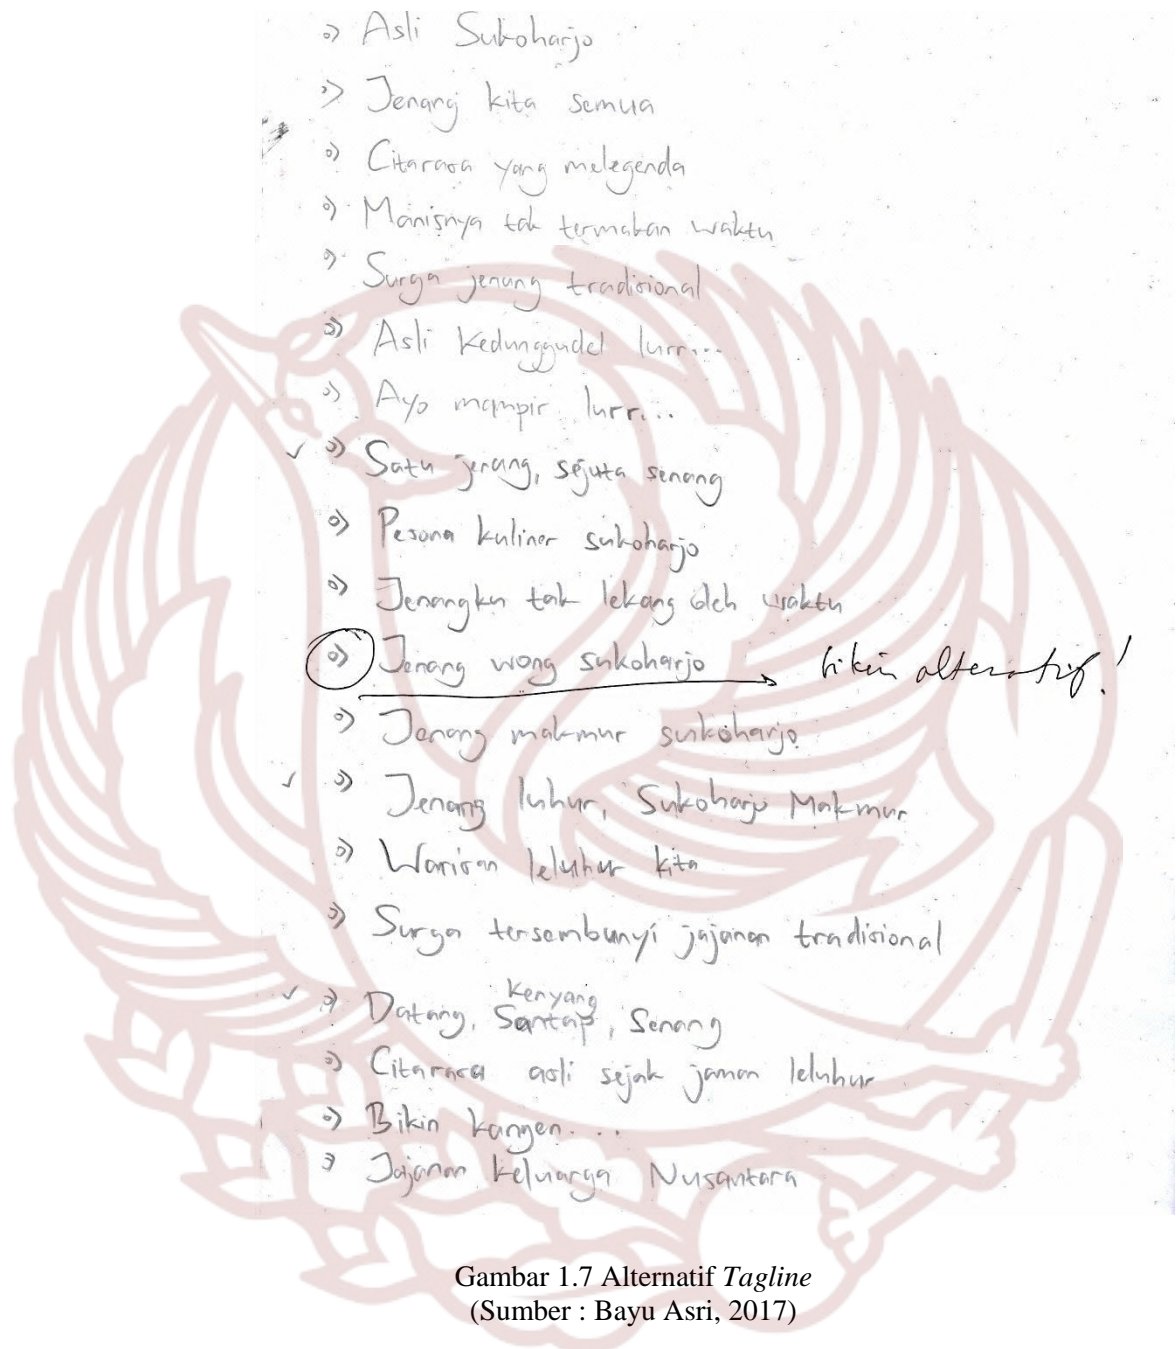 Asli Sukoharjo
Jenang kita semua
Citarasa yang melegenda
Manisnya tak termakan waktu
Surga jenang tradisional
Asli Kedunggudel lurr...
Ayo mampir lurr...
✓ Satu jenang, sejuta senang
Pesona kuliner sukoharjo
Jenangku tak lekang oleh waktu
Jenang wong sukoharjo → bikin alternatif!
Jenang makmur sukoharjo
✓ Jenang luhur, Sukoharjo Makmur
Warisan leluhur kita
Surga tersembunyi jajanan tradisional
Kenyang
✓ Datang, Santap, Senang
Citarasa asli sejak jaman leluhur
Bikin kangen...
Jajanan keluarga Nusantara
Gambar 1.7 Alternatif Tagline
(Sumber : Bayu Asri, 2017)